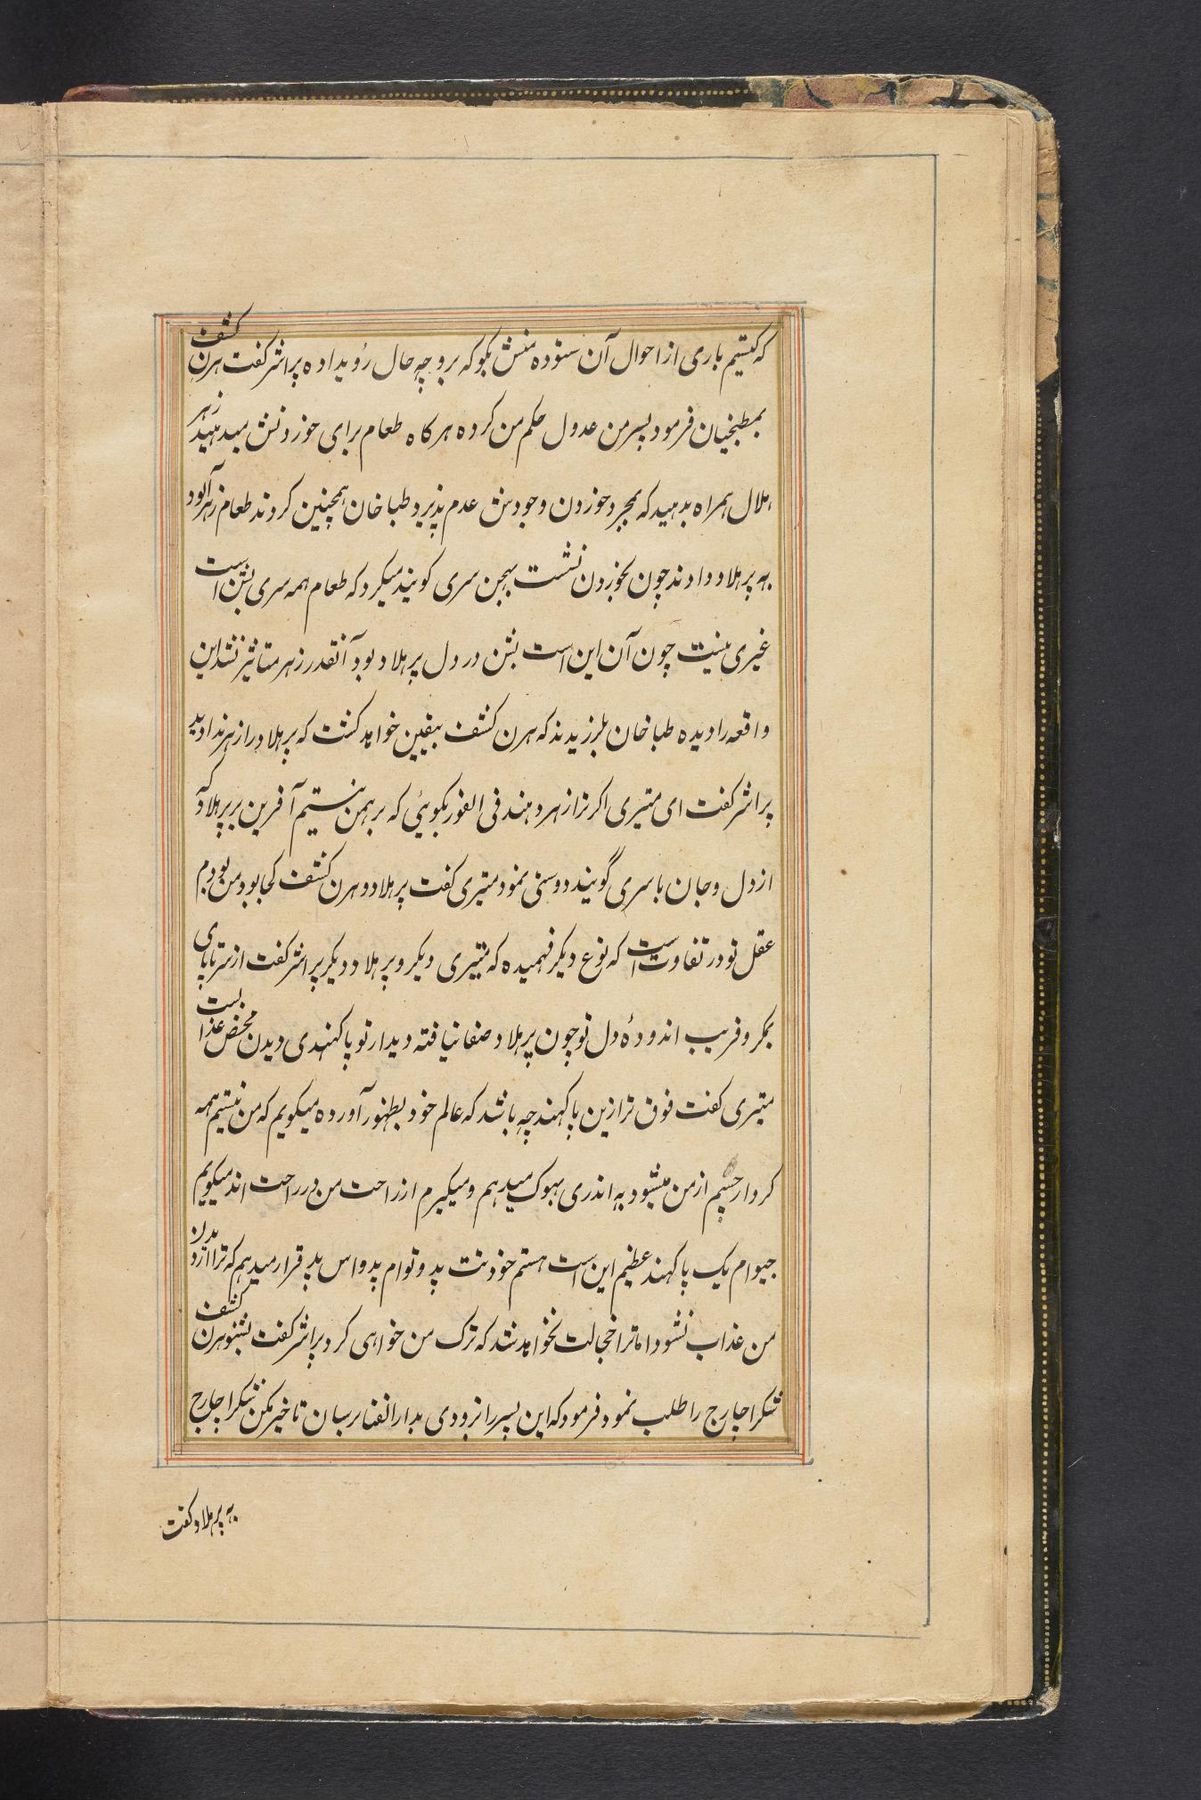 که کیستیم باری از احوال آن ستوده منش بگو که برو چه حال رویداده پراشر کفت هرن کشف
بمطبخیان فرمود پسر من عدول حکم من کرده هرکاه طعام برای خوردنش میدهید زهر
هلال همراه بدهید که بمجرد خوردن وجودش عدم پذیرد طباخان همچنین کردند طعام زهرآلود
به پرهلاد دادند چون بخوردن نشست بهجن سری کوبند میکرد که طعام همه سری بشن است
غیری نیست چون آن این است بشن در دل پرهلاد بود آنقدر زهر متاثیر نشد این
واقعه را دیده طباخان بلرزیدند که هرن کشف بیقین خواهد کشت که پرهلاد را زهر ندادید
پراشر کفت ای متیری اکر ترا زهر دهند فی الفور بکوئی که برهمن نیستیم آفرین بر پرهلاد که
از دل و جان با سری گوبند دوستی نمود متیری کفت پرهلاد و هرن کشف کجا بود من بودم
عقل تو در تفاوت است که نوع دیکر فهمیده که متیری دیکر و پرهلاد دیکر پراشر کفت از سر تا پای
بمکر و فریب اندوده دل تو چون پرهلاد صفا نیافته دیدار تو پاکهندی دیدن محض عذابست
متیری کفت فوق تر ازین پاکهند چه باشد که عالم خود بظهور آورده میکویم که من نیستیم همه
کردار چشم از من میشود به اندری بهوک میدهم و میکیرم از راحت من در راحت اند میکویم
جیوام یک پاکهند عظیم این است هستم خود تت پد و توام پد واس پد قرار میدهم که ترا از دیدن
من عذاب نشود اما ترا خجالت نخواهد شد که ترک من خواهی کرد پراشر کفت بشنو هرن کشف
شکراچارج را طلب نمود فرمود که این پسر را بزودی بدار الفنا رسان تاخیر مکن شکراچارج
به پرهلاد کفت